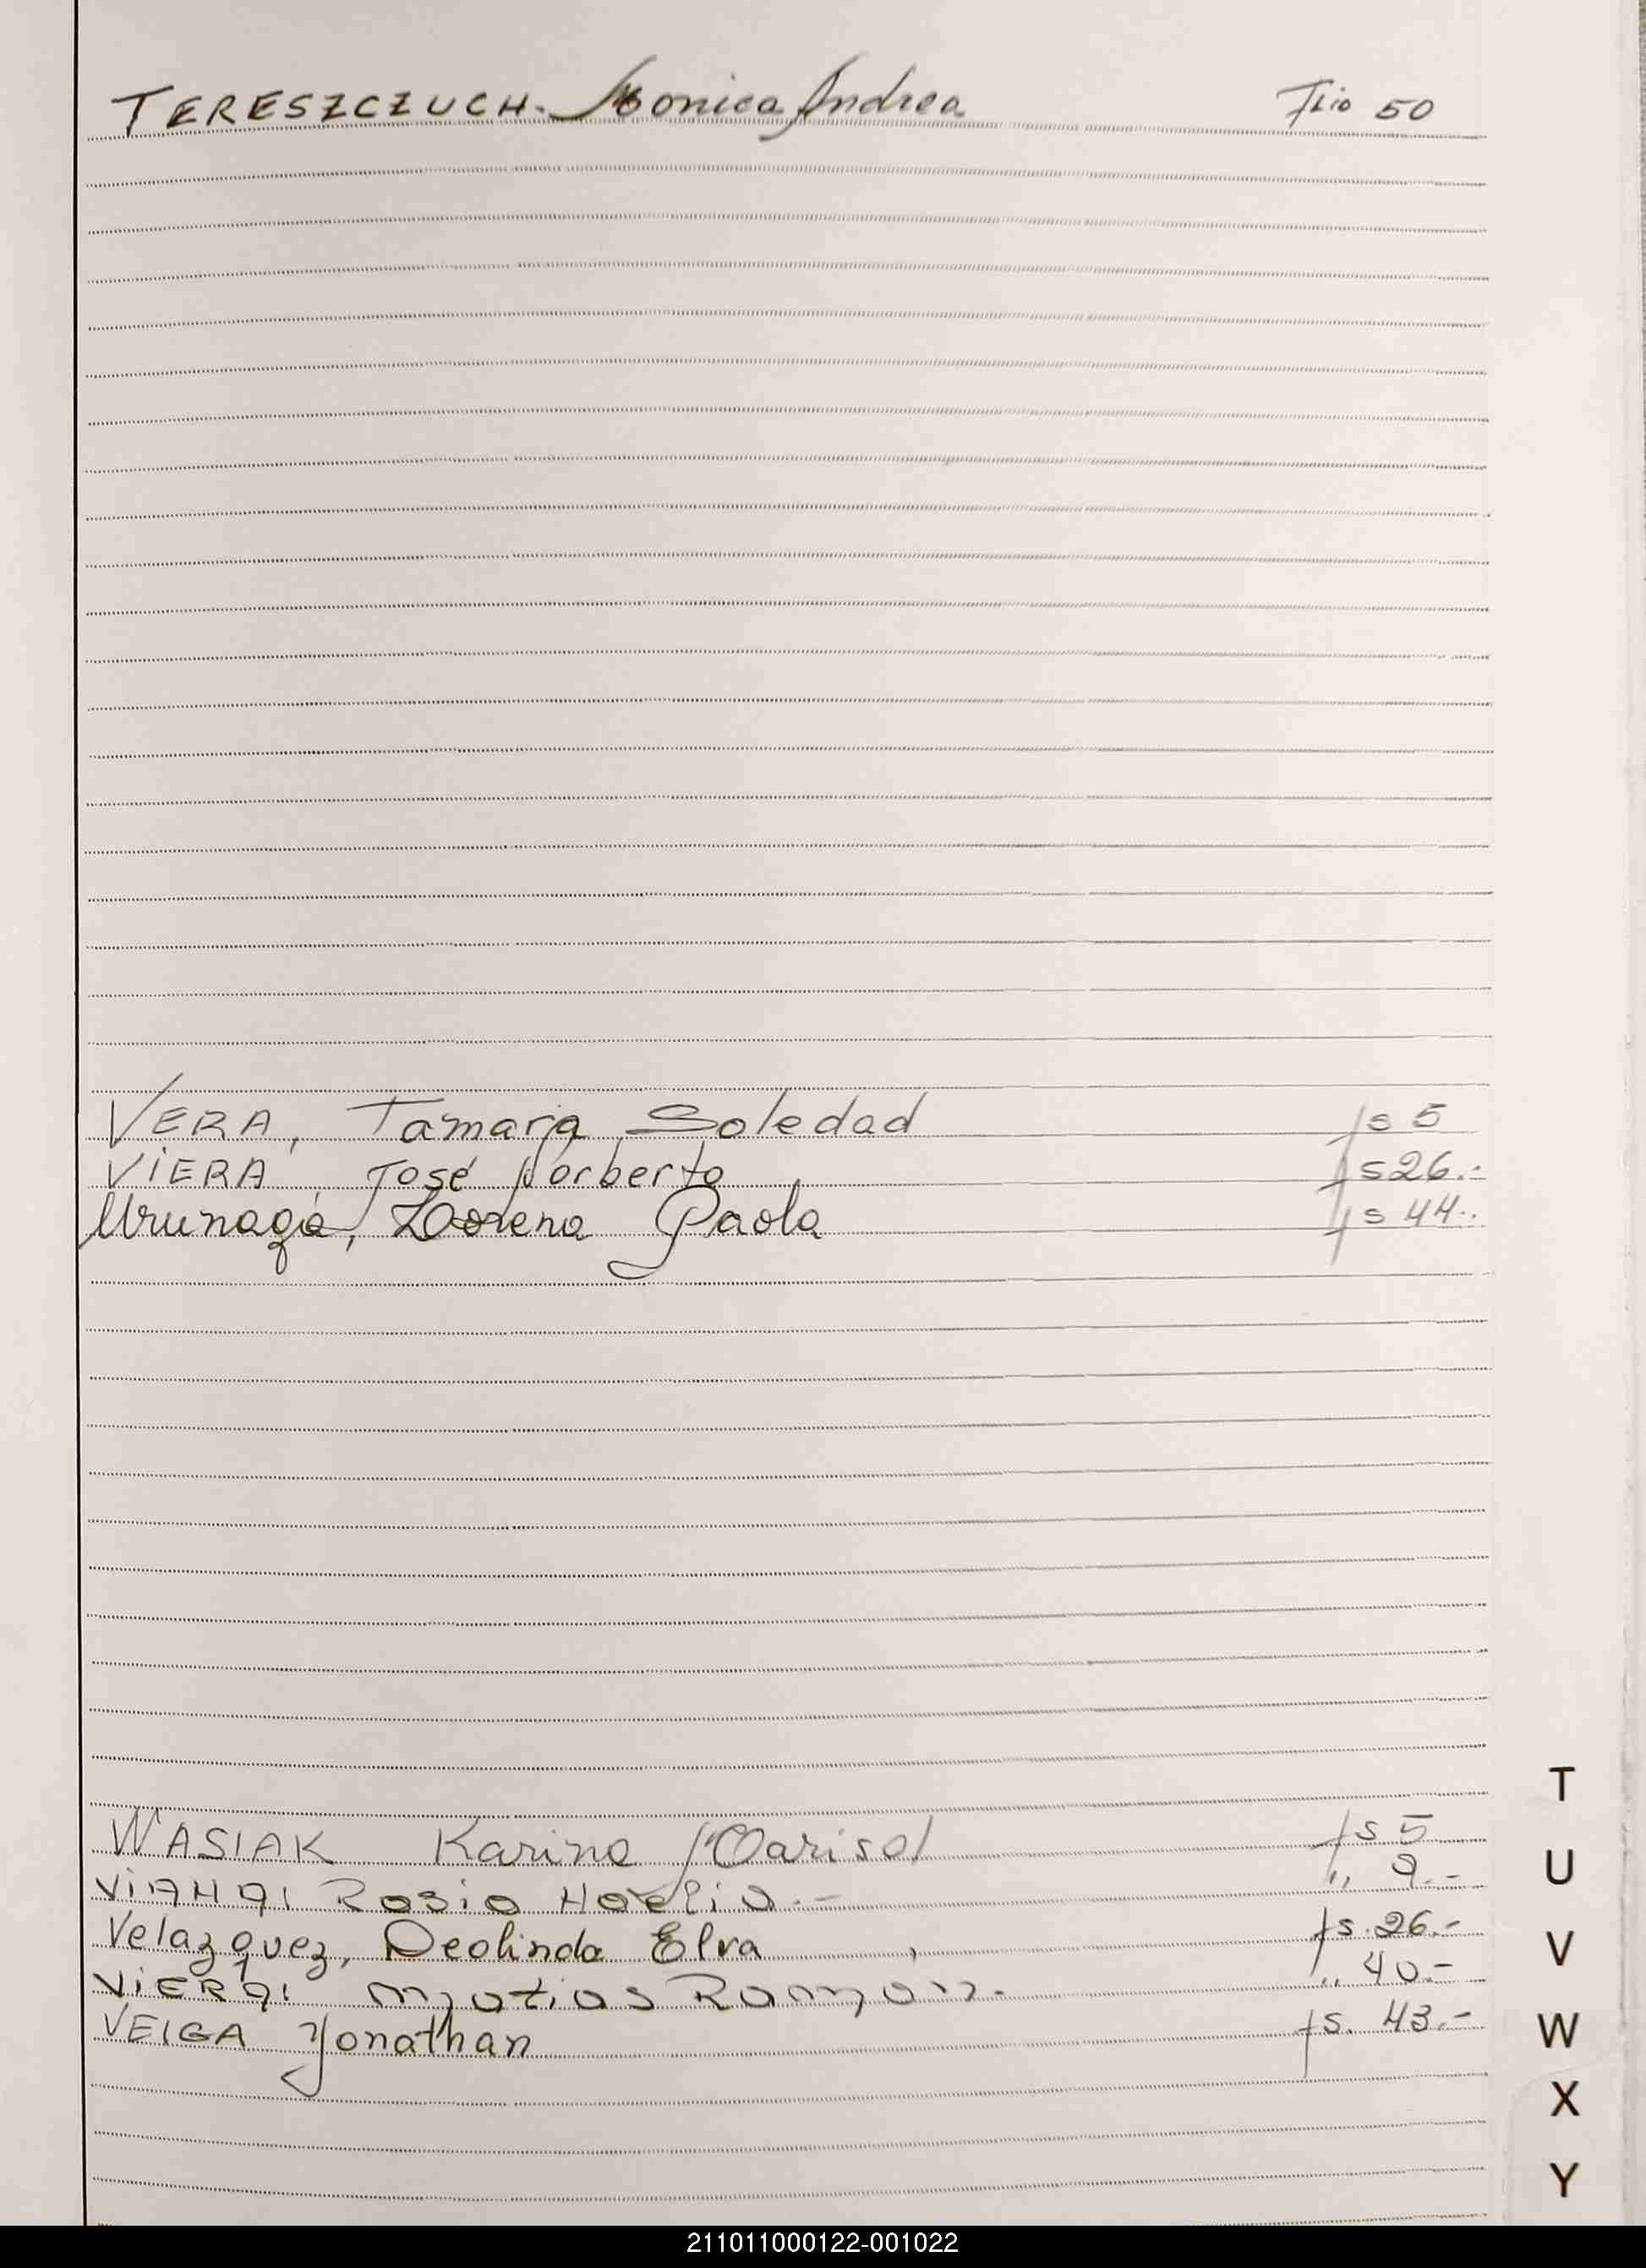 TERESZCZUCH. Monica Andrea Flio 50
VERA, Tamara Soledad fs 5
VIERA, José Norberto fs 26.-
Urunaga, Lorena Paola fs 44.-
WASIAK Karina Marisol fs 5
Rosio Noelia.- ,, 9.-
Velazquez, Deolinda Elva fs. 26.-
VIERA: Matias Ramón.- ,, 40.-
VEIGA Yonathan fs. 43.-
T
U
V
W
X
Y
211011000122-001022